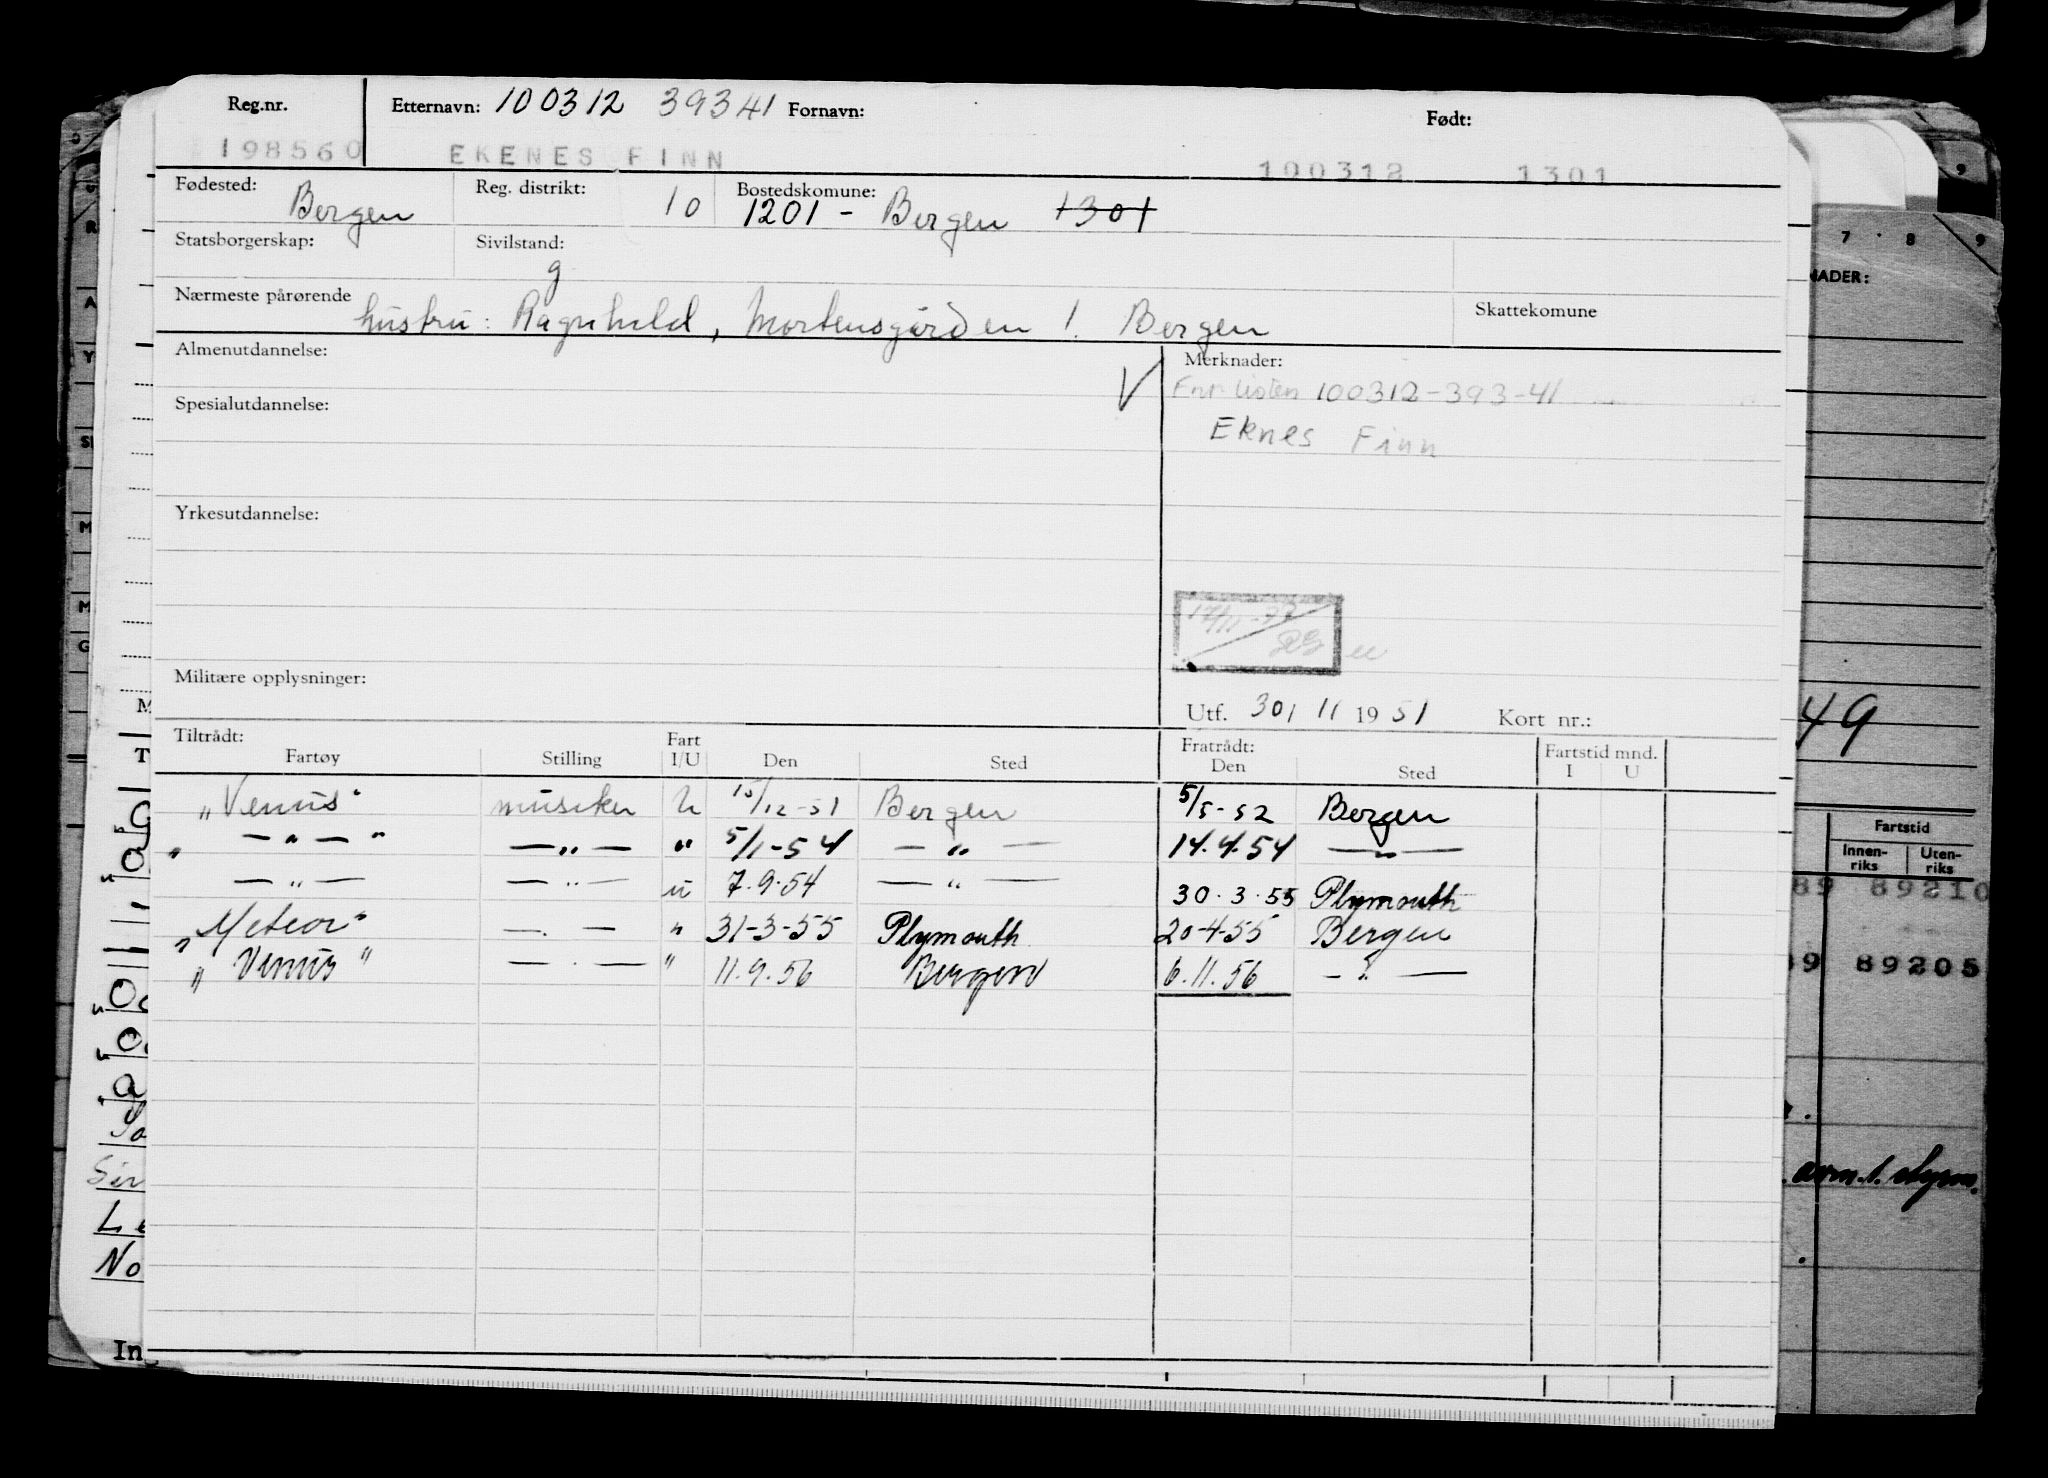 Reg.nr. Etternavn: 100312 39341 Fornavn: Født:
198560 EKENES FINN 100312 1301
Fødested: Bergen Reg. distrikt: 10 Bostedskomune: 1201 - Bergen 1301
Statsborgerskap: Sivilstand: g
Nærmeste pårørende hustru: Ragnhild, Mortensgården 1. Bergen Skattekomune
Almenutdannelse: Merknader:
V Fnr listen 100312-393-41
Spesialutdannelse: Eknes Finn
Yrkesutdannelse:
17/11-77
Militære opplysninger:
Utf. 30/ 11 1951 Kort nr.:
Tiltrådt: Fart Fratrådt: Fartstid mnd.
Fartøy Stilling I/U Den Sted Den Sted I U
"Venus" musiker U 15/12-51 Bergen 5/5-52 Bergen
" —"— " —"— " 5/1-54 —"— 14.4.54 —"—
—"— —"— u 7.9.54 —"— 30.3.55 Plymouth
"Meteor" —.— " 31-3-55 Plymouth 20-4-55 Bergen
"Venus" —.— " 11.9.56 Bergen 6.11.56 —"—
7 8 9
NADER:
49
Fartstid
Innen-riks Uten-riks
89 89210
89205
No
In